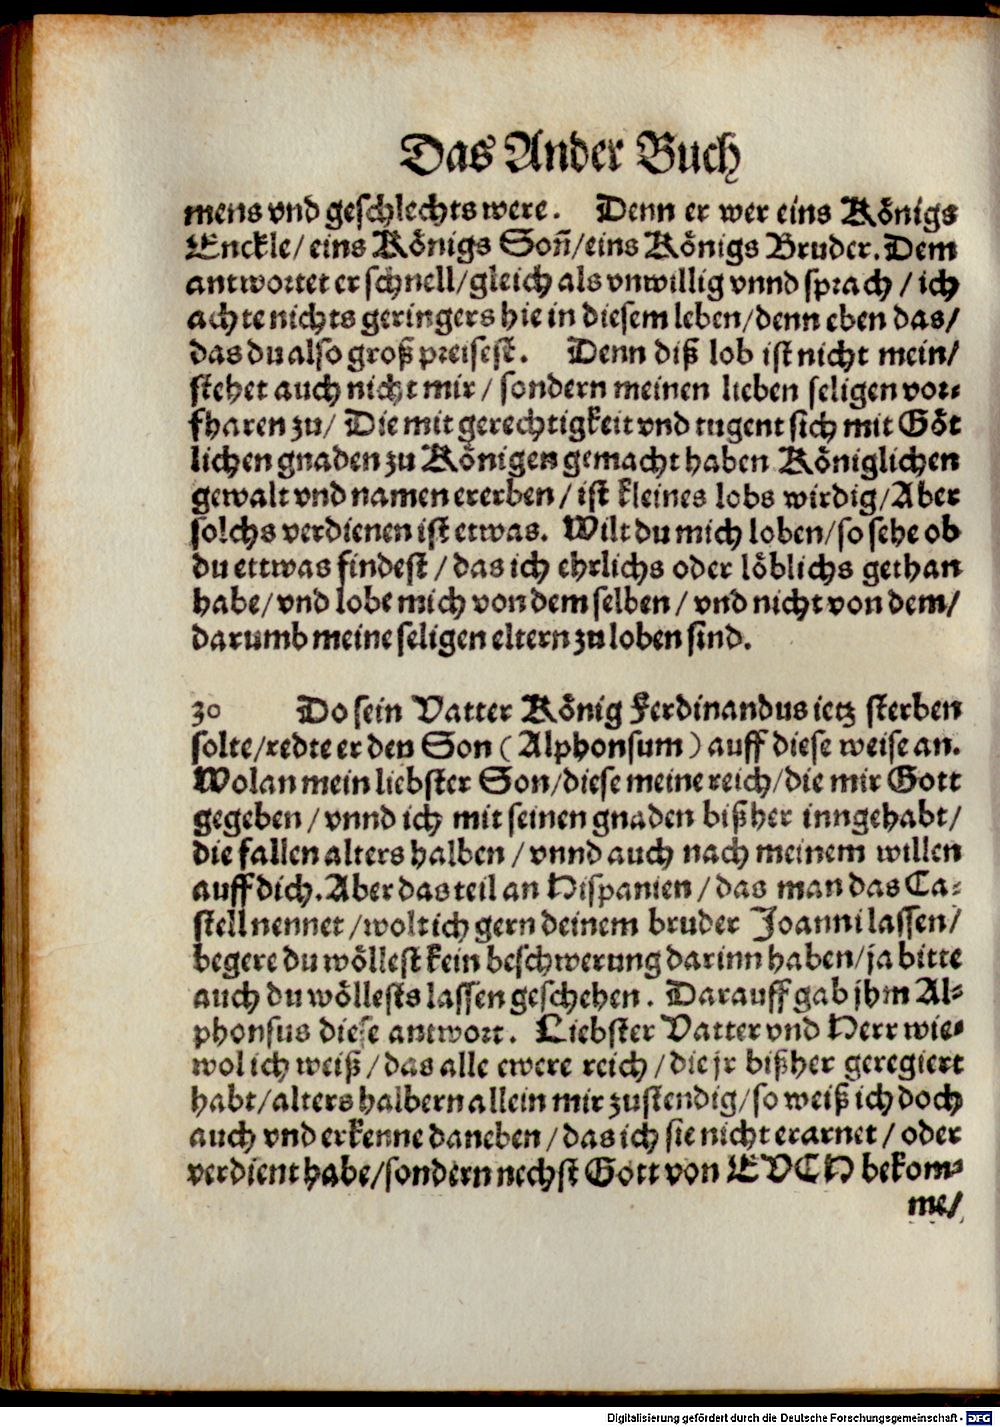 Das Ander Buch
mens vnd geschlechts were. Denn er wer eins Königs
Enckle/ eins Königs Soñ/eins Königs Bruder. Dem
antwortet er schnell/gleich als vnwillig vnnd sprach / ich
achte nichts geringers hie in diesem leben/denn eben das/
das du also groß preisest. Denn diß lob ist nicht mein/
stehet auch nicht mir / sondern meinen lieben seligen vor-
fharen zu/ Die mit gerechtigkeit vnd tugent sich mit Göt
lichen gnaden zu Königen gemacht haben Königlichen
gewalt vnd namen ererben / ist kleines lobs wirdig/Aber
solchs verdienen ist etwas. Wilt du mich loben/so sehe ob
du ettwas findest / das ich ehrlichs oder löblichs gethan
habe/ vnd lobe mich von dem selben / vnd nicht von dem/
darumb meine seligen eltern zu loben sind.
30 Do sein Vatter König Ferdinandus ietz sterben
solte/redte er den Son ( Alphonsum ) auff diese weise an.
Wolan mein liebster Son/diese meine reich/die mir Gott
gegeben / vnnd ich mit seinen gnaden bißher inngehabt/
die fallen alters halben / vnnd auch nach meinem willen
auff dich. Aber das teil an Hispanien / das man das Ca-
stell nennet /wolt ich gern deinem bruder Joanni lassen/
begere du wöllest kein beschwerung darinn haben/ja bitte
auch du wöllests lassen geschehen. Darauff gab jhm Al-
phonsus diese antwort. Liebster Vatter vnd Herr wie-
wol ich weiß / das alle ewere reich / die jr bißher geregiert
habt/alters halbern allein mir zustendig/so weiß ich doch
auch vnd erkenne daneben / das ich sie nicht erarnet / oder
verdient habe/sondern nechst Gott von EVCH bekom-
me/
Digitalisierung gefördert durch die Deutsche Forschungsgemeinschaft - DFG